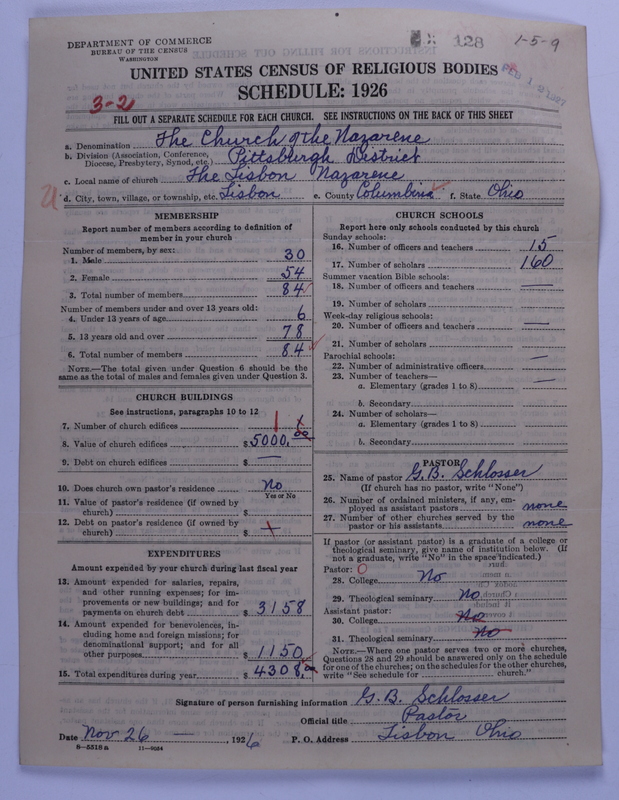 DEPARTMENT OF COMMERCE
BUREAU OF THE CENSUS
WASHINGTON
128
1-5-9
UNITED STATES CENSUS OF RELIGIOUS BODIES
FEB 12 1927
SCHEDULE: 1926
3-2
FILL OUT A SEPARATE SCHEDULE FOR EACH CHURCH. SEE INSTRUCTIONS ON THE BACK OF THIS SHEET
a. Denomination The Church of the Nazarene
b. Division (Association, Conference, Diocese, Presbytery, Synod, etc.) Pittsburgh District
c. Local name of church The Lisbon Nazarene
d. City, town, village, or township, etc. Lisbon e. County Columbina f. State Ohio
MEMBERSHIP
Report number of members according to definition of
member in your church
Number of members, by sex:
1. Male 30
2. Female 54
3. Total number of members 84
Number of members under and over 13 years old:
4. Under 13 years of age 6
5. 13 years old and over 78
6. Total number of members 84
NOTE.—The total given under Question 6 should be the
same as the total of males and females given under Question 3.
CHURCH BUILDINGS
See instructions, paragraphs 10 to 12
7. Number of church edifices 1
8. Value of church edifices $5000.00
9. Debt on church edifices $ —
10. Does church own pastor's residence No
Yes or No
11. Value of pastor's residence (if owned by
church) $
12. Debt on pastor's residence (if owned by
church) $ —
EXPENDITURES
Amount expended by your church during last fiscal year
13. Amount expended for salaries, repairs,
and other running expenses; for im-
provements or new buildings; and for
payments on church debt $ 3158
14. Amount expended for benevolences, in-
cluding home and foreign missions; for
denominational support; and for all
other purposes $ 1150
15. Total expenditures during year $ 4308.00
CHURCH SCHOOLS
Report here only schools conducted by this church
Sunday schools:
16. Number of officers and teachers 15
17. Number of scholars 160
Summer vacation Bible schools:
18. Number of officers and teachers —
19. Number of scholars
Week-day religious schools:
20. Number of officers and teachers —
21. Number of scholars
Parochial schools:
22. Number of administrative officers —
23. Number of teachers—
a. Elementary (grades 1 to 8) —
b. Secondary
24. Number of scholars—
a. Elementary (grades 1 to 8)
b. Secondary
PASTOR
25. Name of pastor G. B. Schlosser
(If church has no pastor, write "None")
26. Number of ordained ministers, if any, em-
ployed as assistant pastors none
27. Number of other churches served by the
pastor or his assistants none
If pastor (or assistant pastor) is a graduate of a college or
theological seminary, give name of institution below. (If
not a graduate, write "No" in the space indicated.)
Pastor: 0
28. College No
29. Theological seminary No
Assistant pastor:
30. College No
31. Theological seminary No
NOTE.—Where one pastor serves two or more churches,
Questions 28 and 29 should be answered only on the schedule
for one of the churches; on the schedules for the other churches,
write "See schedule for church."
Signature of person furnishing information G. B. Schlosser
Official title Pastor
Date Nov 26 —, 1926 P. O. Address Lisbon Ohio
8—5518a 11—9034